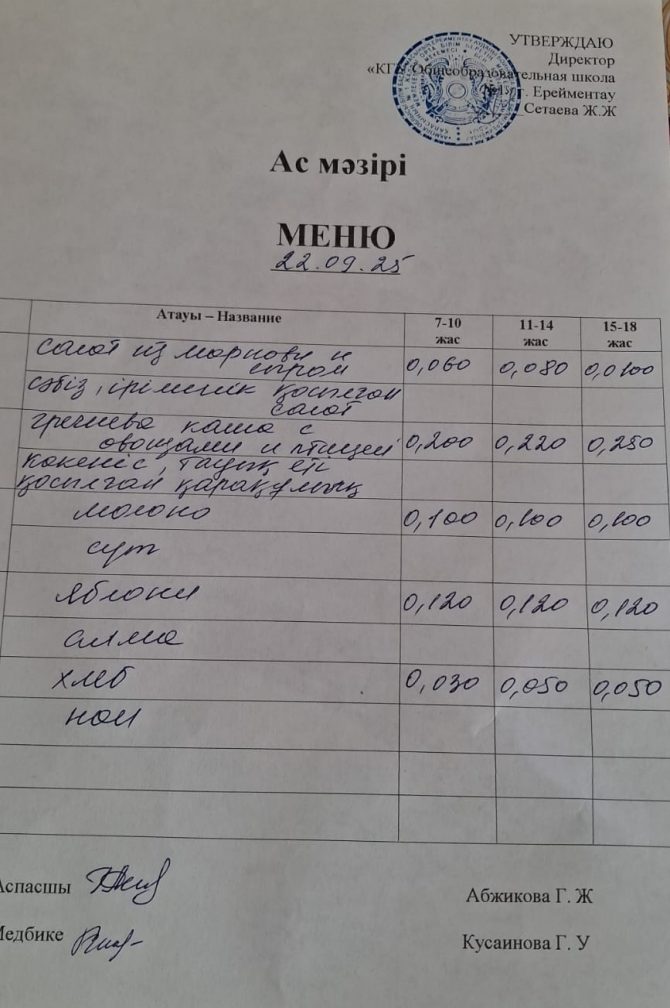 УТВЕРЖДАЮ
Директор
«КГУ Общеобразовательная школа
№1, г. Ерейментау
Сетаева Ж.Ж
Ас мәзірі
МЕНЮ
22.09.25
Атауы – Название 7-10 жас 11-14 жас 15-18 жас
салат из моркови и сыром 0,060 0,080 0,0100
сәбіз, ірімшік қосылған салат
гречнева каша с овощами и птицей 0,200 0,220 0,250
көкеніс, тауық еті қосылған қарақұмық
молоко 0,100 0,100 0,100
сүт
яблоки 0,120 0,120 0,120
алма
хлеб 0,030 0,050 0,050
нан
Аспасшы Абжикова Г. Ж
Медбике Кусаинова Г. У